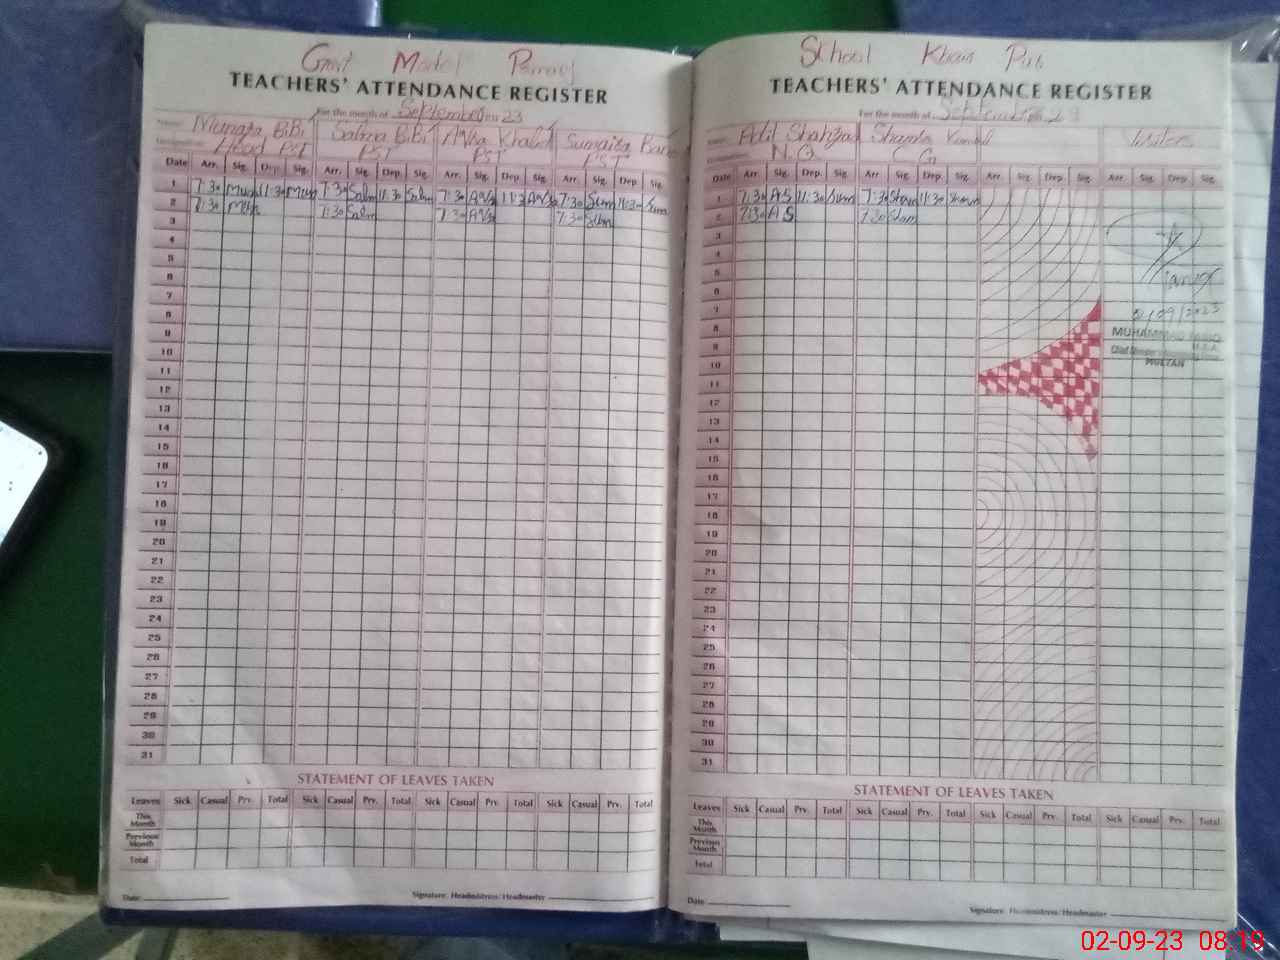 Govt Model Primary
TEACHERS' ATTENDANCE REGISTER
For the month of September 23
Name: Munaza BiBi Salma BiBi Khalid Sumaira
Designation: Head PST PST PST PST
Date Arr. Sig. Dep. Sig. Arr. Sig. Dep. Sig. Arr. Sig. Dep. Sig. Arr. Sig. Dep. Sig.
1 7:30 Mun 11:30 Mun 7:30 Salm 11:30 Salm 7:30 11:30 7:30 Sum 11:30 Sum
2 7:30 Mun 7:30 Salm 7:30 7:30 Sum
3
4
5
6
7
8
9
10
11
12
13
14
15
16
17
18
19
20
21
22
23
24
25
26
27
28
29
30
31
STATEMENT OF LEAVES TAKEN
Leaves Sick Casual Prv. Total Sick Casual Prv. Total Sick Casual Prv. Total Sick Casual Prv. Total
This Month
Previous Month
Total
Date Signature: Headmistress/Headmaster
School Khan Pur
TEACHERS' ATTENDANCE REGISTER
For the month of September 23
Name: Adil Shahzad Visitors
Designation: N.Q C G
Date Arr. Sig. Dep. Sig. Arr. Sig. Dep. Sig. Arr. Sig. Dep. Sig. Arr. Sig. Dep. Sig.
1 7:30 AS 11:30 7:30 Sham 11:30 Sham
2 7:30 AS 7:30 Sham
3
4
5
6
7
8
9
10
11
12
13
14
15
16
17
18
19
20
21
22
23
24
25
26
27
28
29
30
31
2/09/2023
MUHAMMAD
MULTAN
STATEMENT OF LEAVES TAKEN
Leaves Sick Casual Prv. Total Sick Casual Prv. Total Sick Casual Prv. Total Sick Casual Prv. Total
This Month
Previous Month
Total
Date Signature: Headmistress/Headmaster
02-09-23 08:19